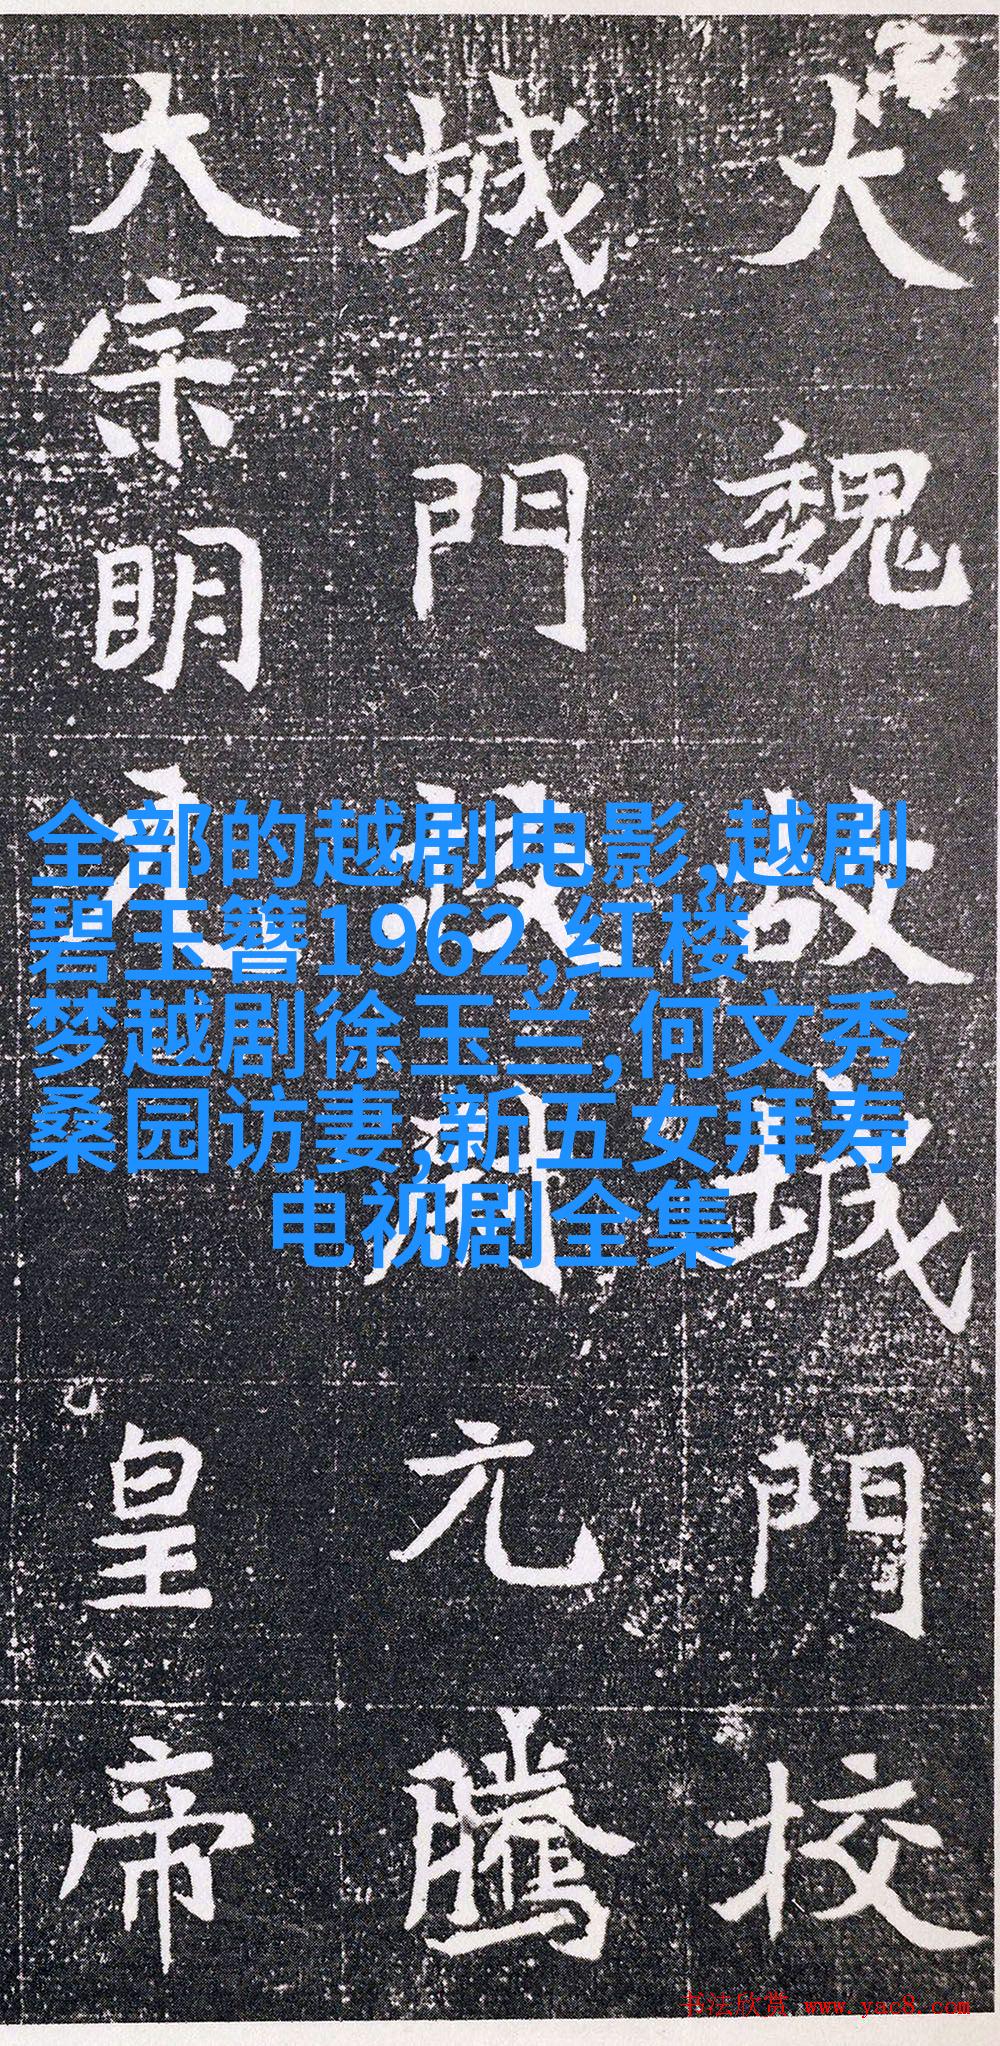 大魏故城門校
城門元騰
大宗明元皇帝
全部的越剧电影,越剧
碧玉簪1962,红楼
梦越剧徐玉兰,何文秀
桑园访妻,新五女拜寿
电视剧全集
书法欣赏 www.yac8.com